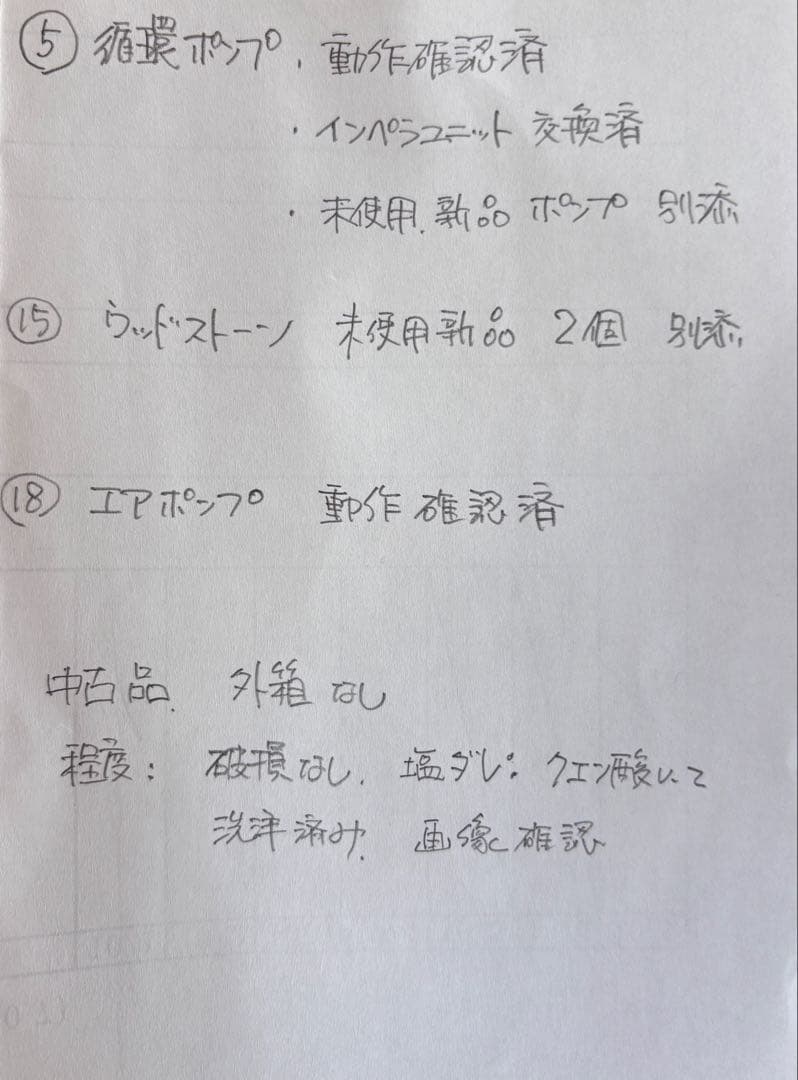 ⑤ 循環ポンプ. 動作確認済
・インペラユニット 交換済
・未使用.新品 ポンプ 別添
⑮ ウッドストーン 未使用新品 2個 別添
⑱ エアポンプ 動作確認済
中古品. 外箱なし
程度: 破損なし. 塩ダレ: クエン酸にて
洗浄済み. 画像に確認